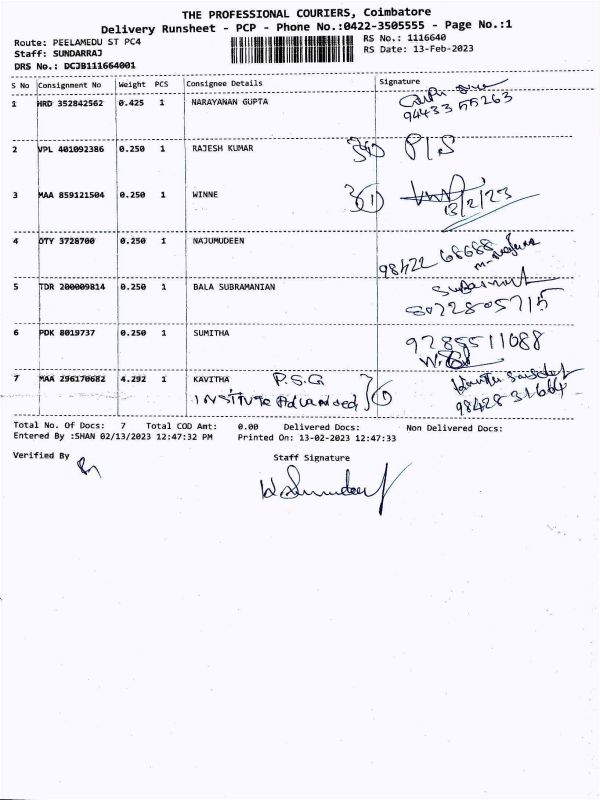 THE PROFESSIONAL COURIERS, Coimbatore
Delivery Runsheet - PCP - Phone No.:0422-3505555 - Page No.:1
Route: PEELAMEDU ST PC4 RS No.: 1116640
Staff: SUNDARRAJ RS Date: 13-Feb-2023
DRS No.: DCJB111664001
S No Consignment No Weight PCS Consignee Details Signature
1 HRD 352842562 0.425 1 NARAYANAN GUPTA
94433 55263
2 VPL 401092386 0.250 1 RAJESH KUMAR P/S
3 MAA 859121504 0.250 1 WINNE
13/2/23
4 OTY 3728700 0.250 1 NAJUMUDEEN
98422 68688
5 TDR 200009814 0.250 1 BALA SUBRAMANIAN
6 PDK 8019737 0.250 1 SUMITHA
9285511088
7 MAA 296170682 4.292 1 KAVITHA P.S.G
INSTITUTE Advanced
98428 31664
Total No. Of Docs: 7 Total COD Amt: 0.00 Delivered Docs: Non Delivered Docs:
Entered By :SHAN 02/13/2023 12:47:32 PM Printed On: 13-02-2023 12:47:33
Verified By Staff Signature